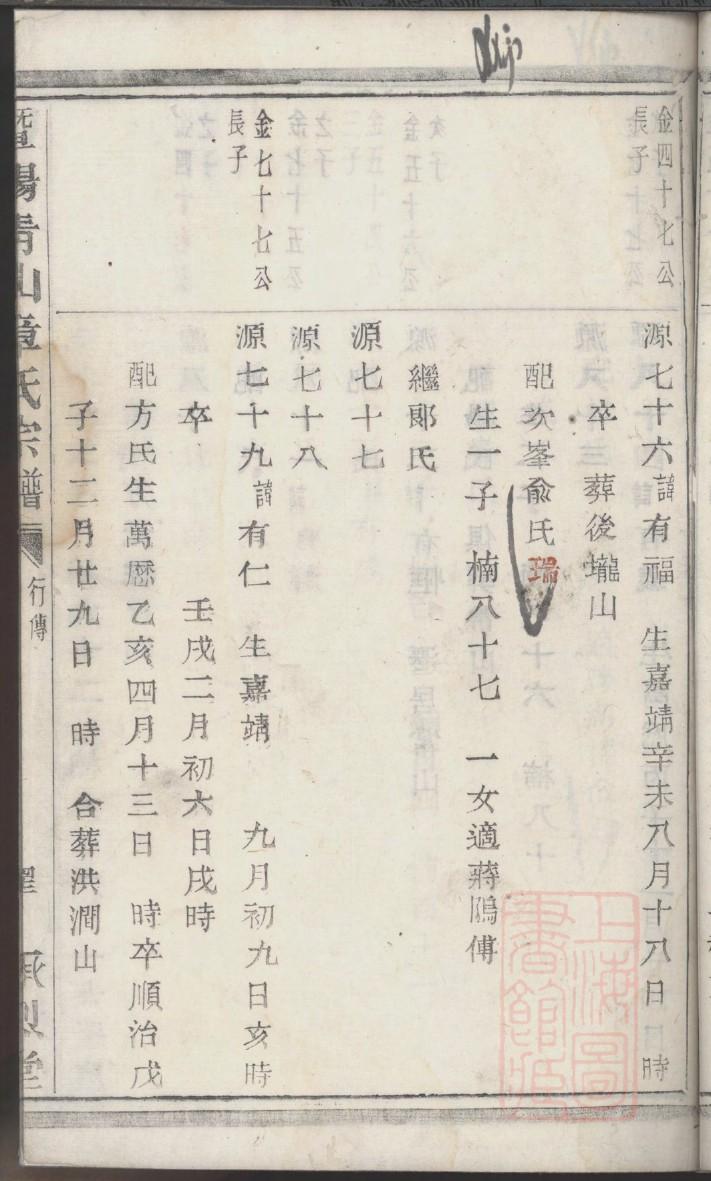 金四十七公
長子
源七十六諱有福 生嘉靖辛未八月十八日 時
卒 葬後壠山
配次峯俞氏瑞
生一子 楠八十七 一女適蔣鳴傅
繼郎氏
源七十七
源七十八
金七十七公
長子
源七十九諱有仁 生嘉靖 九月初九日亥時
卒 壬戌二月初六日戌時
配方氏生萬曆乙亥四月十三日 時卒順治戊
子十二月廿九日 時 合葬洪澗山
陽青山章氏宗譜
行傳
承烈堂
上海圖書館藏